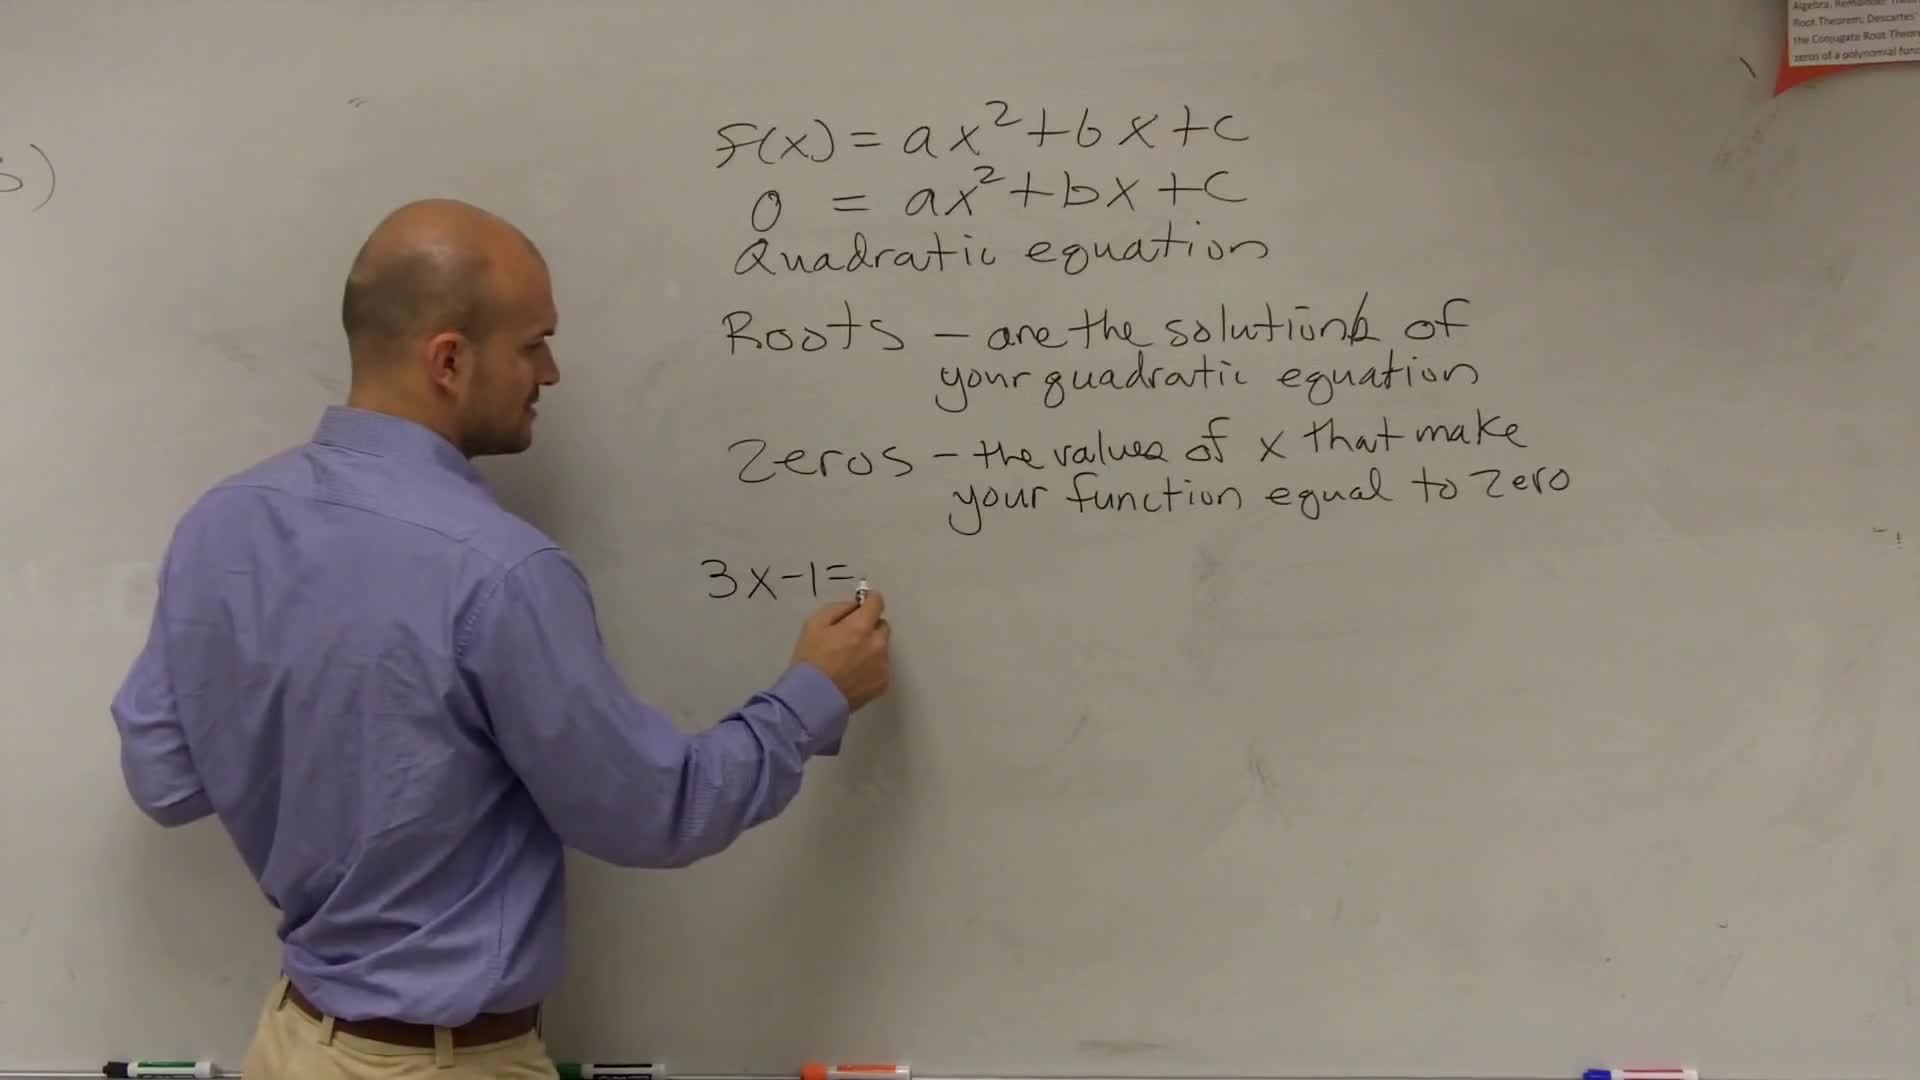 Algebra, Remainder Theor
Root Theorem; Descartes'
the Conjugate Root Theor
zeros of a polynomial func
s)
f(x) = ax²+bx+c
0 = ax²+bx+c
Quadratic equation
Roots – are the solutions of
your quadratic equation
Zeros – the values of x that make
your function equal to zero
3x-1=